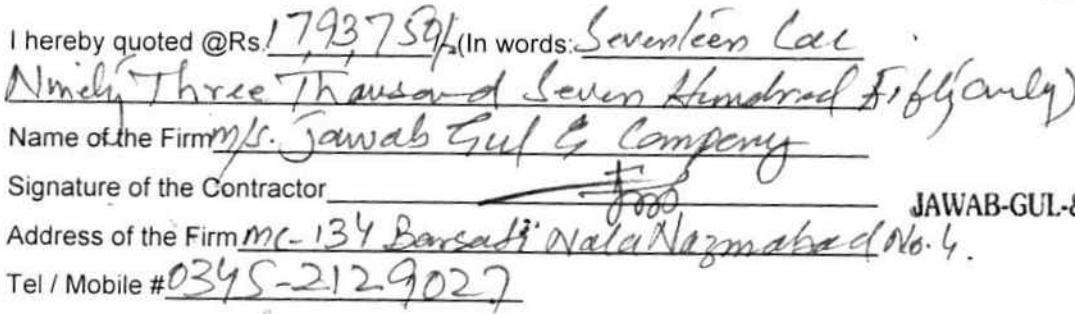 I hereby quoted @Rs. 17,93,750/- (In words: Seventeen Lac
Ninety Three Thousand Seven Hundred Fifty (only)
Name of the Firm M/s. Jawab Gul & Company
Signature of the Contractor
JAWAB-GUL-&
Address of the Firm MC-134 Barsati Nala Nazmabad No. 4.
Tel / Mobile # 0345-2129027